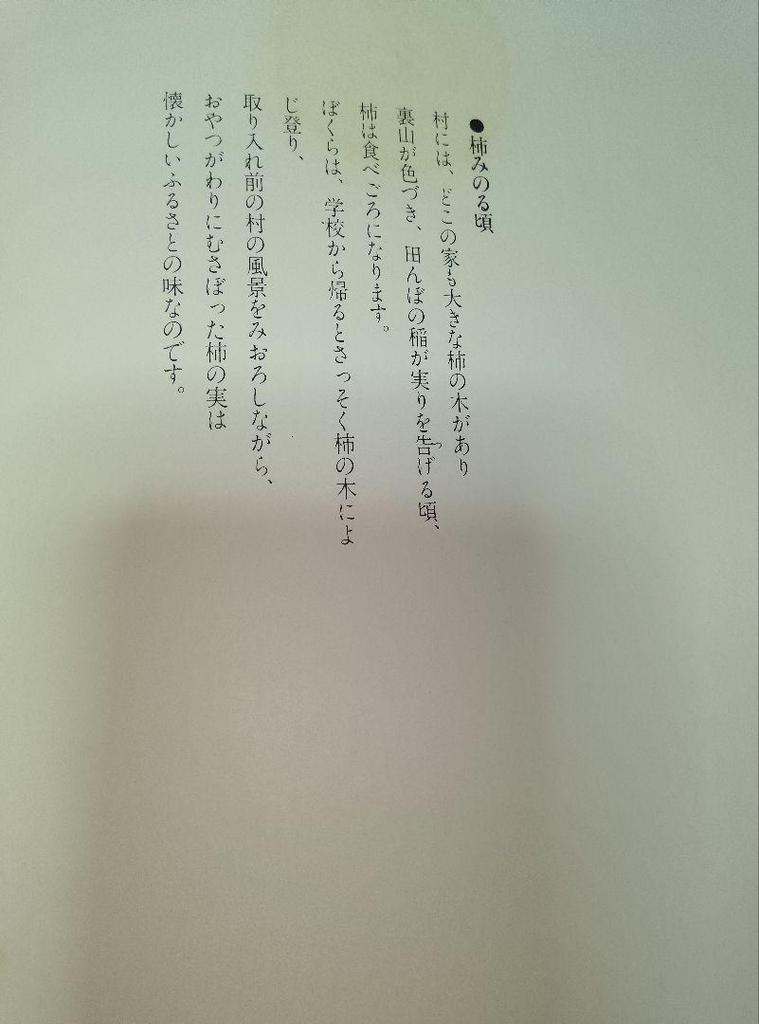 ●柿みのる頃
村には、どこの家も大きな柿の木があり
裏山が色づき、田んぼの稲が実りを告げる頃、
柿は食べごろになります。
ぼくらは、学校から帰るとさっそく柿の木によ
じ登り、
取り入れ前の村の風景をみおろしながら、
おやつがわりにむさぼった柿の実は
懐かしいふるさとの味なのです。